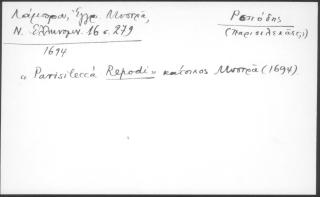 Λάμπρου, Έγγρ. Μυστρᾶ,
Ν. Ἑλληνομν. 16 σ. 279
1694
Ρεπόδης
(Παρισιλεκάς;)
"Parisileccà Repodi" κάτοικος Μυστρᾶ (1694)